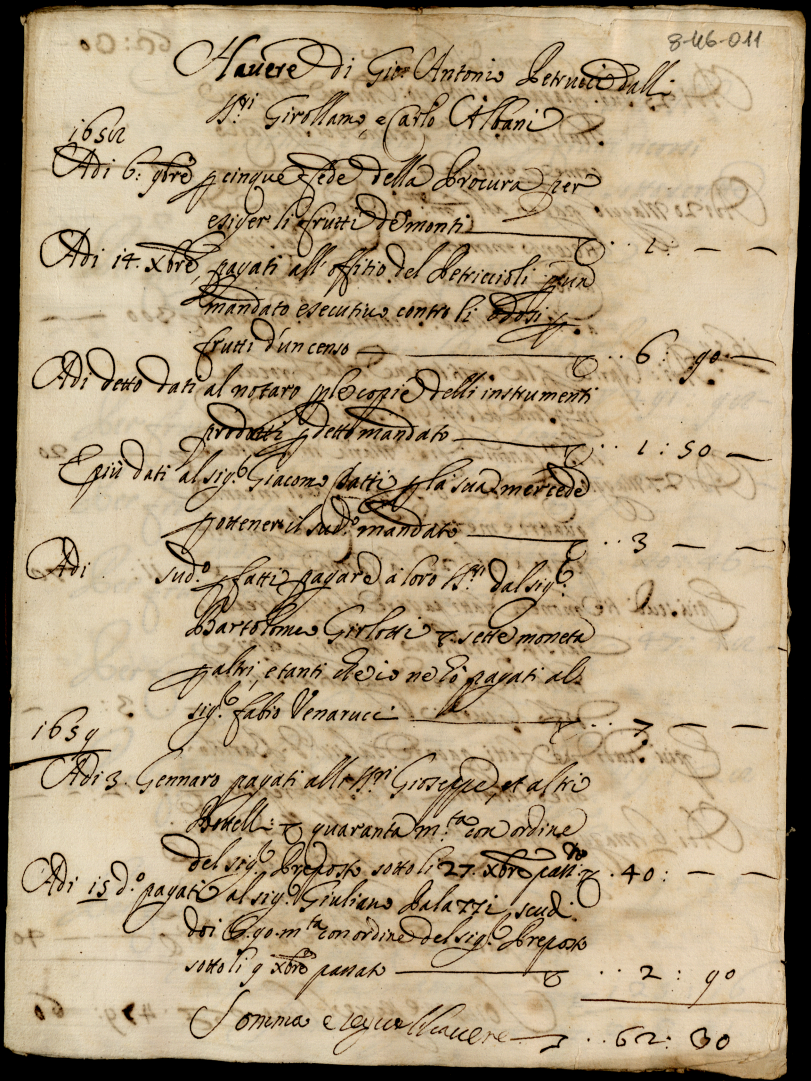 8-46-011
Havere di Gio: Antonio Petrucci dalli
SSri Girollamo, e Carlo Albani
1658
Adi 6: 9bre p cinque fede della Procura per
esiger li frutti de monti 1: — —
Adi 14. Xbre, pagati all'offitio del Petriccioli p un
mandato esecutivo contro li
frutti d'un censo 6: 90 —
Adi detto dati al notaro p le copie delli instrumenti
prodotti p detto mandato 1: 50 —
E più dati al sig.r Giacomo Gatti p la sua mercede
p ottener il sud.o mandato 3 — —
Adi sud.o fatti pagare a loro SSri dal sig.r
Bartolomeo sette moneta
p altri, e tanti che io ne hò pagati al
sig.r Fabio Venarucci 7 — —
1659
Adi 3. Gennaro pagati alli SSri Gioseppe, et altri
quaranta m.ta con ordine
del sig.r Preposto sotto li 27. Xbre pass.to 40: — —
Adi 15 d.o pagati al sig.r Giuliano Palazzi scudi
doi b. 90. m.ta con ordine del sig.r Preposto
sotto li 9 Xbre passato 2: 90
Somma e segue l'havere 62: 30